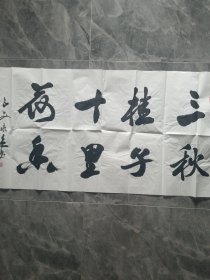 三秋
桂子
十里
荷香